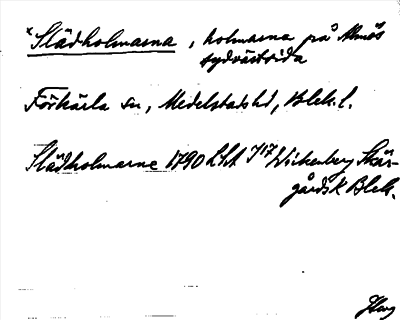 *Slädholmarna, holmarna på Almös
sydvästsida
Förkärla sn, Medelstads hd, Blek. l.
Slädholmarne 1790 LSA J17 Wickenberg Skär-
gårds K Blek.